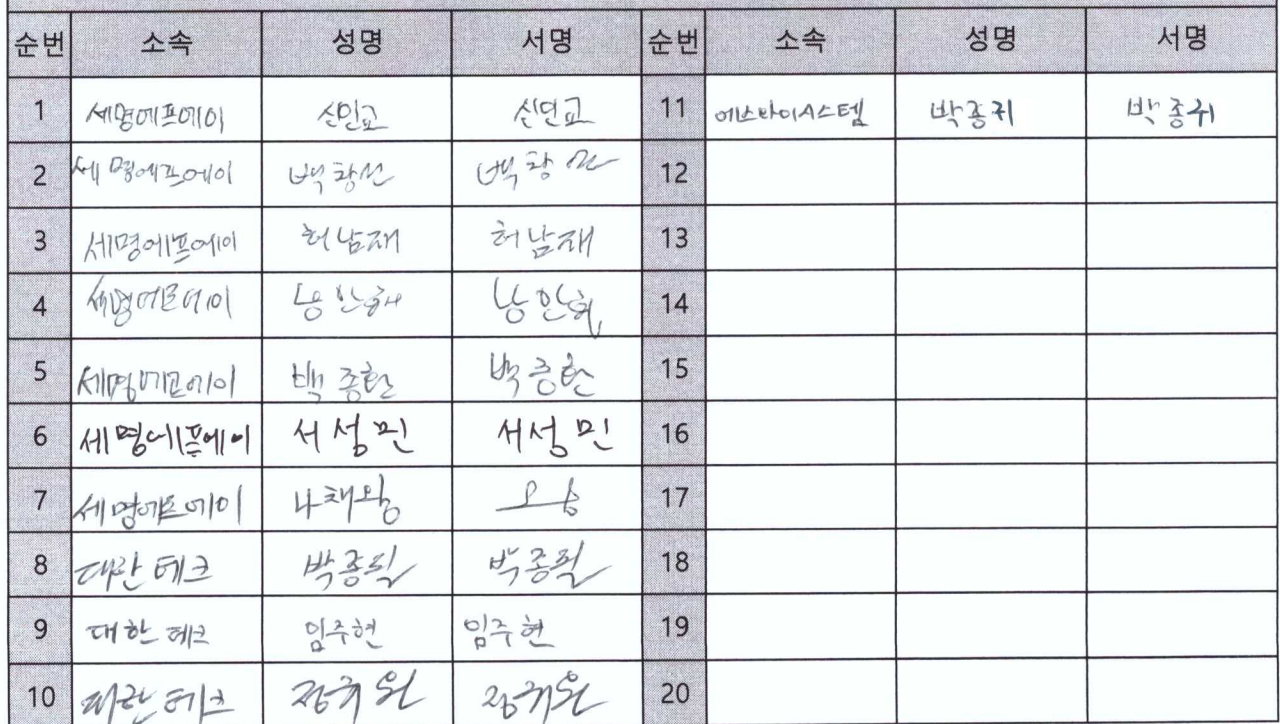 순번 소속 성명 서명 순번 소속 성명 서명
1 세명에프에이 신민교 신민교 11 에스와이시스템 박종귀 박종귀
2 세명에프에이 백창선 백창선 12
3 세명에프에이 허남재 허남재 13
4 세명에프에이 14
5 세명에프에이 백종현 백종현 15
6 세명에프에이 서성민 서성민 16
7 세명에프에이 17
8 대한테크 박종필 박종필 18
9 대한테크 임주현 임주현 19
10 대한테크 20